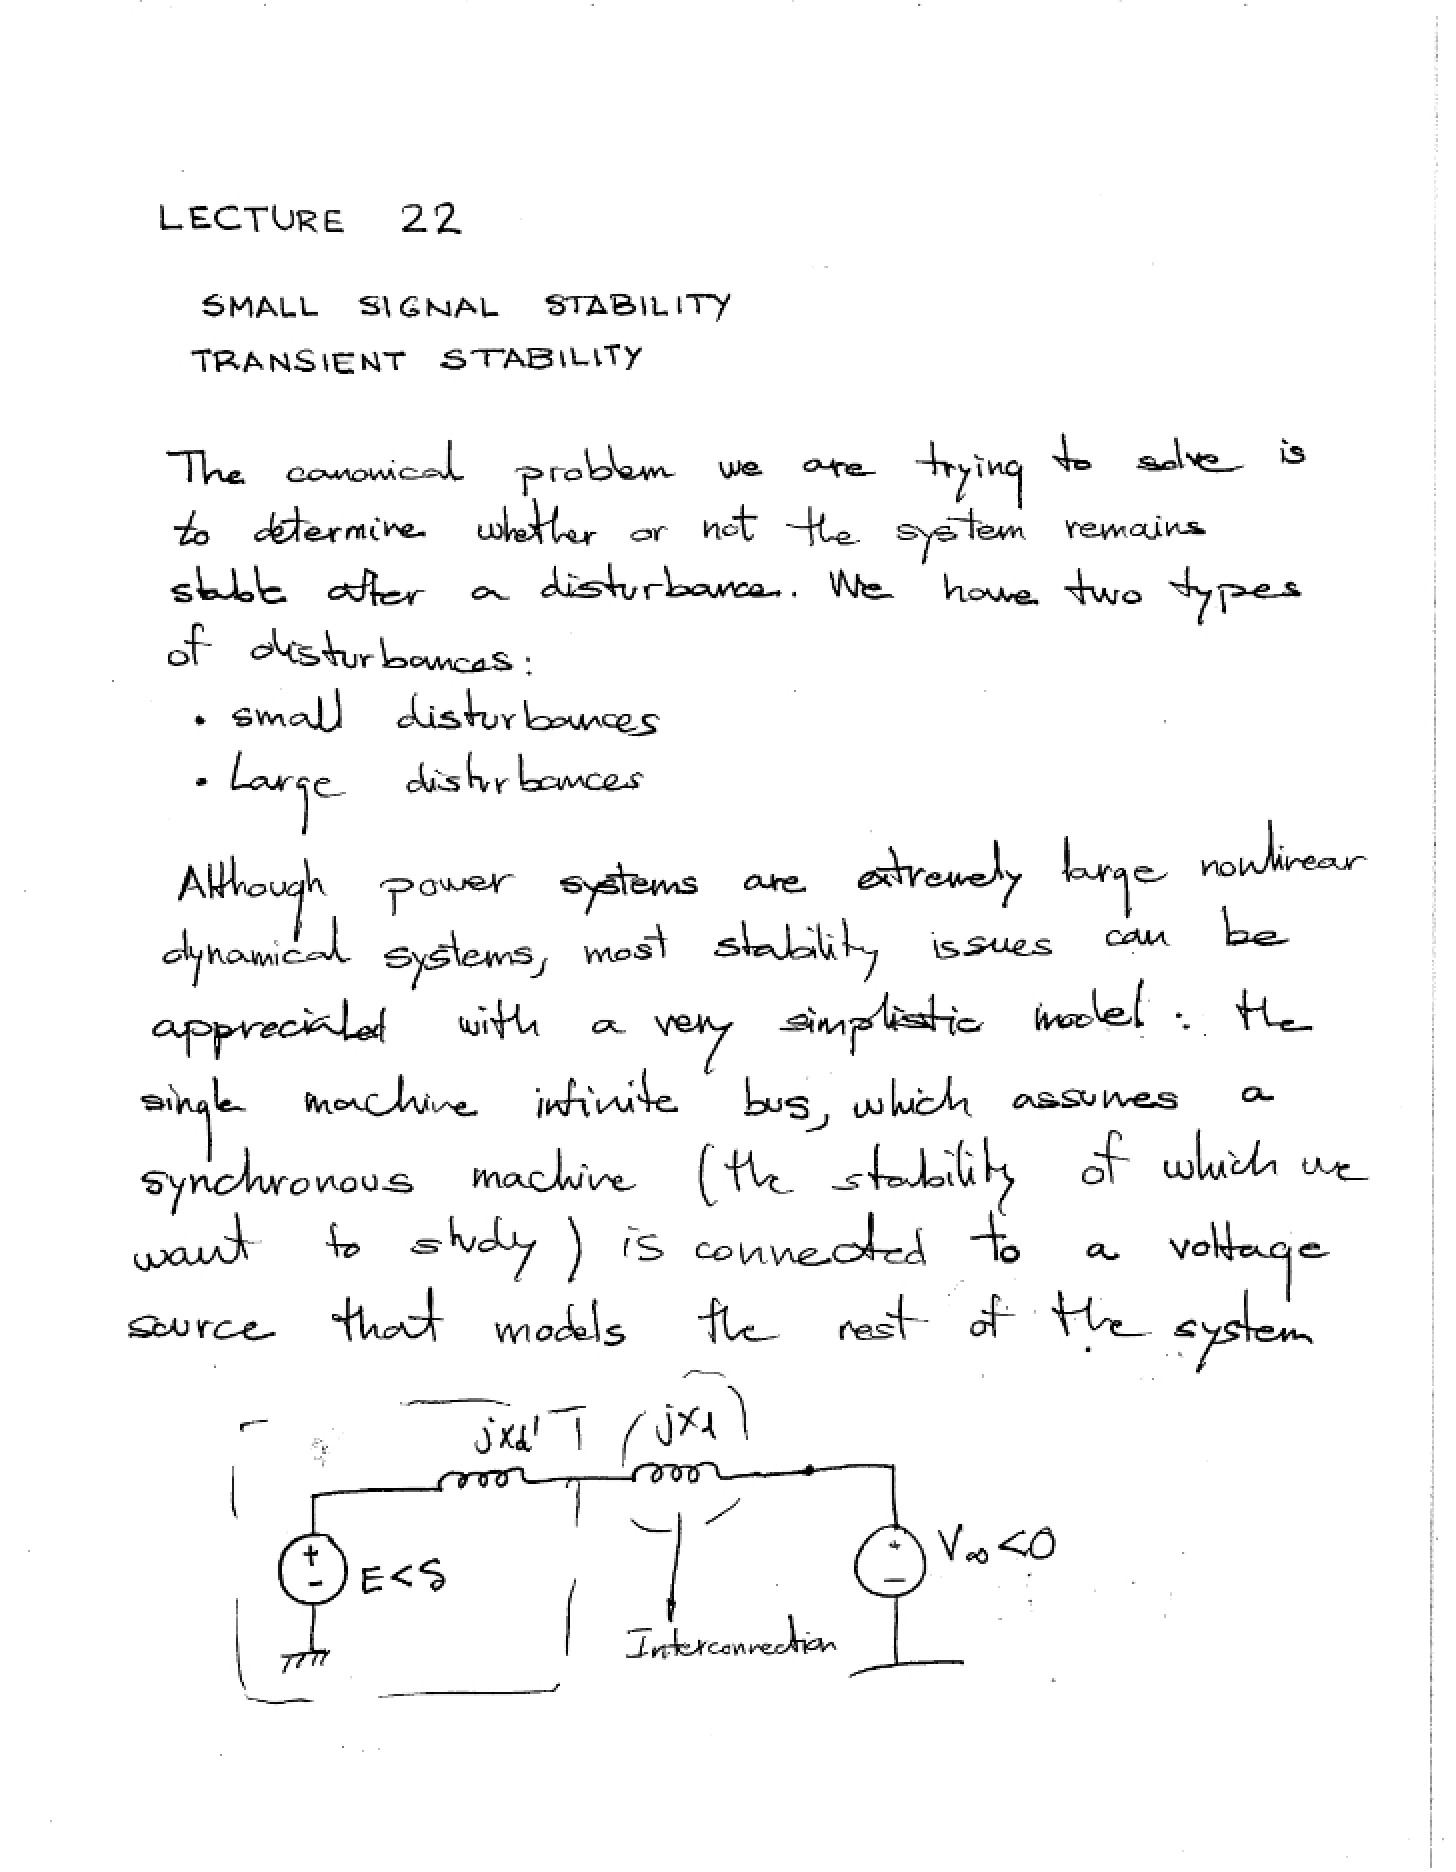 LECTURE 22
SMALL SIGNAL STABILITY
TRANSIENT STABILITY
The canonical problem we are trying to solve is
to determine whether or not the system remains
stable after a disturbance. We have two types
of disturbances:
• small disturbances
• Large disturbances
Although power systems are extremely large nonlinear
dynamical systems, most stability issues can be
appreciated with a very simplistic model: the
single machine infinite bus, which assumes a
synchronous machine (the stability of which we
want to study) is connected to a voltage
source that models the rest of the system
jxd' jxl
+
- E<δ
+
- V∞<0
Interconnection